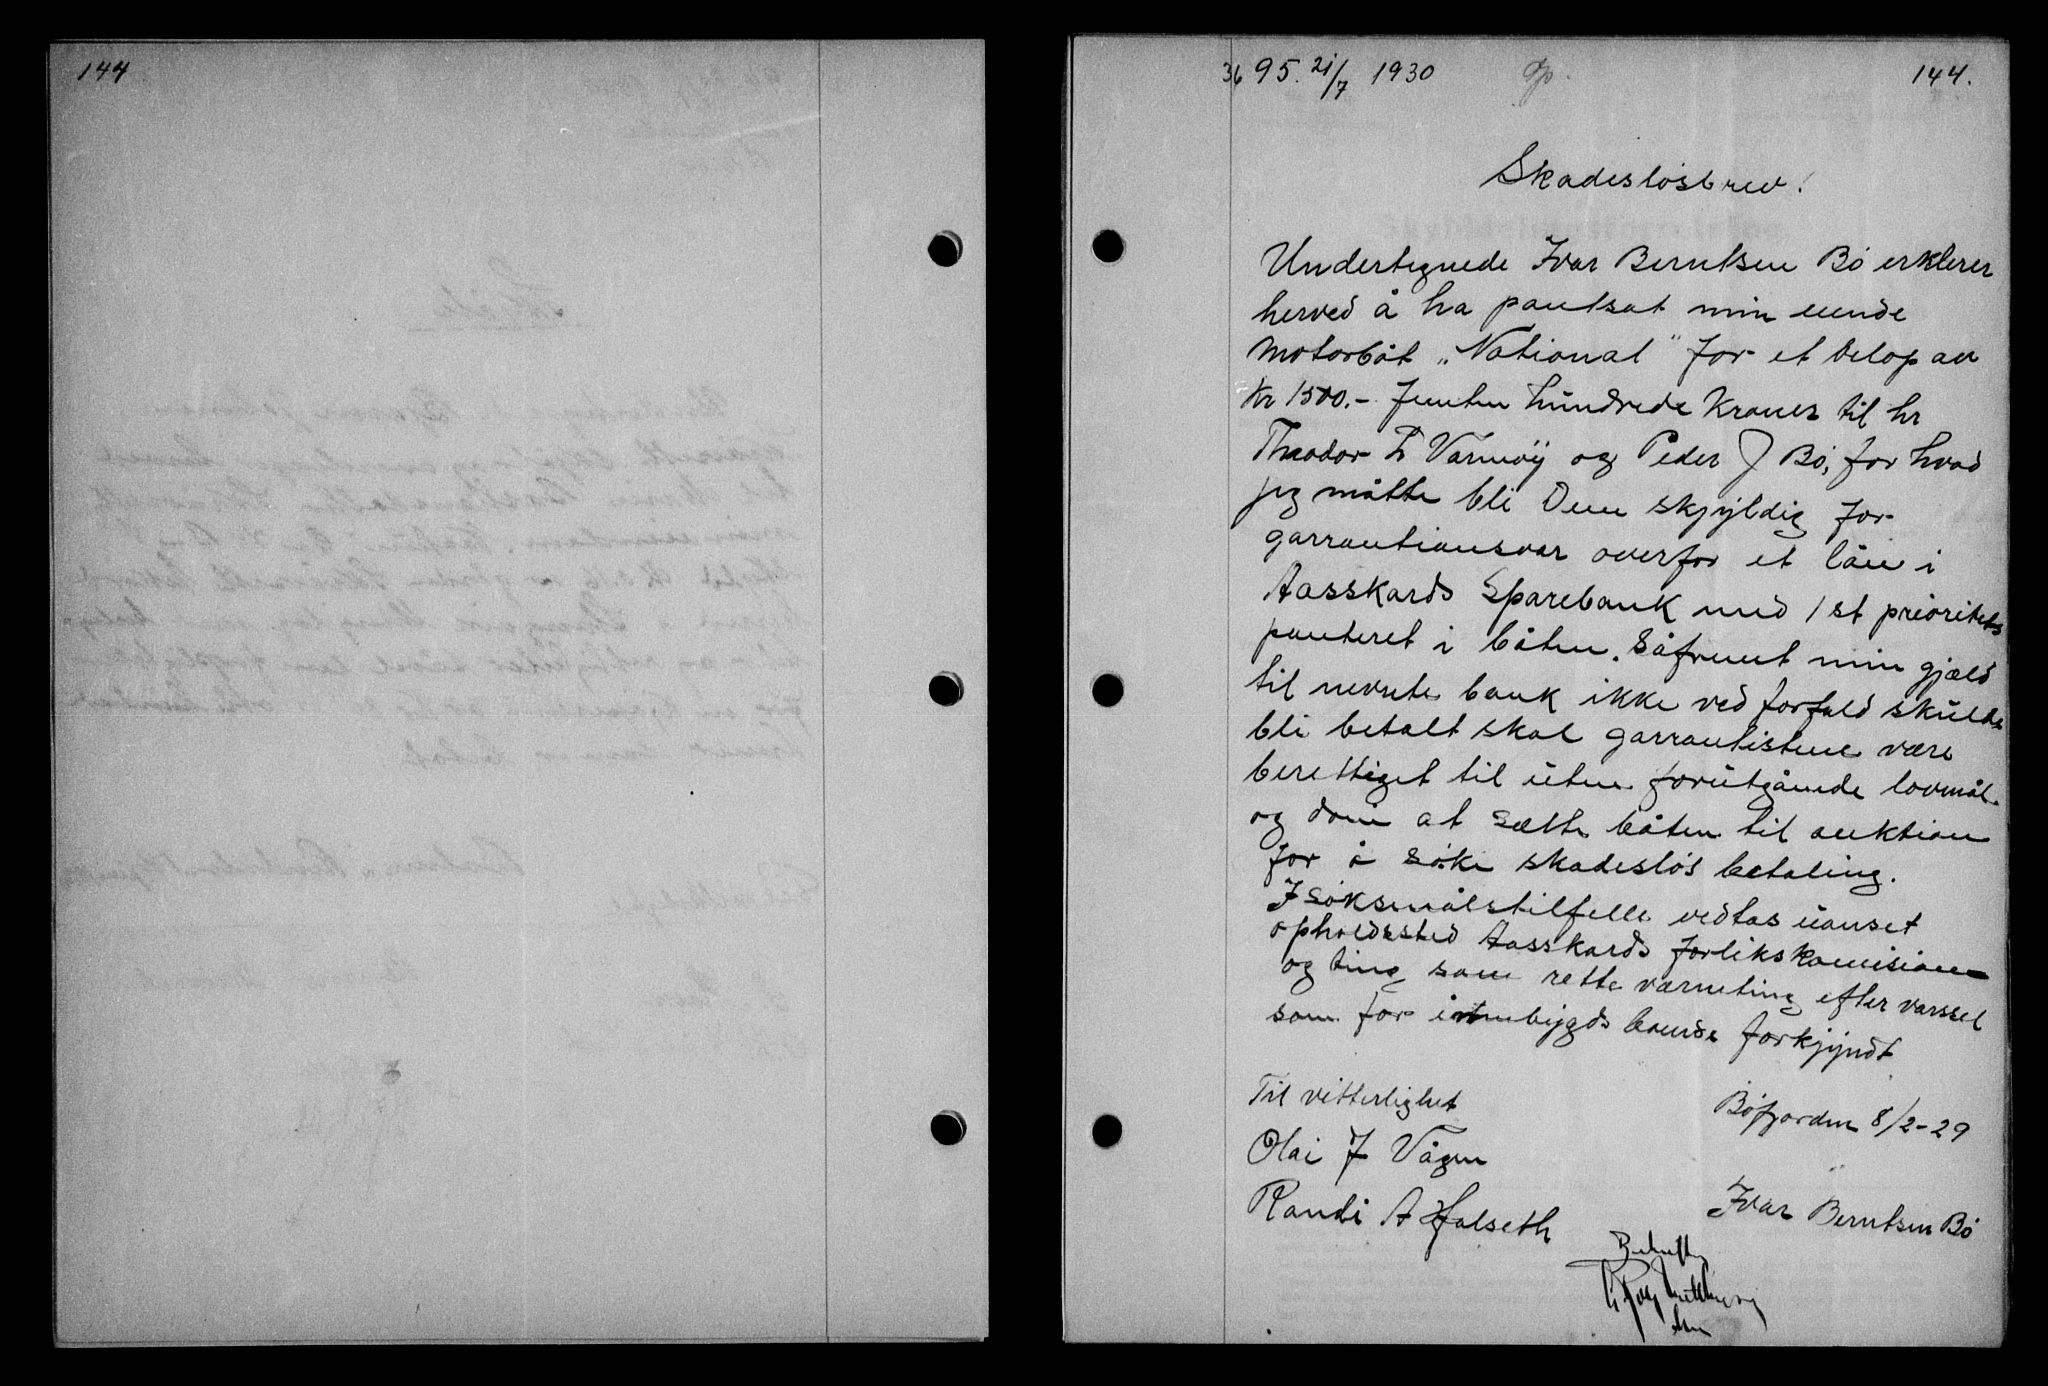 144
3695. 21/7 1930
144.
Skadesløsbrev!
Undertegnede Ivar Berntsen Bø erklerer
herved å ha pantsat min eiende
Motorbåt "National" for et beløp av
Kr 1500.- Femten hundrede Kroner til hr
Theodor L Varnøy og Peder J Bø, for hvad
jeg måtte bli Dem skjyldig for
garrantiansvar overfor et lån i
Aasskards Sparebank med 1st prioritets
panteret i båten. Såfremt min gjæld
til nevnte bank ikke ved forfald skulde
bli betalt skal garrantistene være
berettiget til uten forutgående lovmål
og dom at sætte båten til auktion
for å søke skadesløs betaling.
I søksmålstilfelle vedtas uanset
opholdssted Aasskards forlikskomision
og ting som rette værneting efter varssel
som for innenbygds boende forkjyndt
Til vitterlighet
Bøfjorden 8/2-29
Olai J Vågen
Randi A Halseth
Ivar Berntsen Bø
Bekreftes